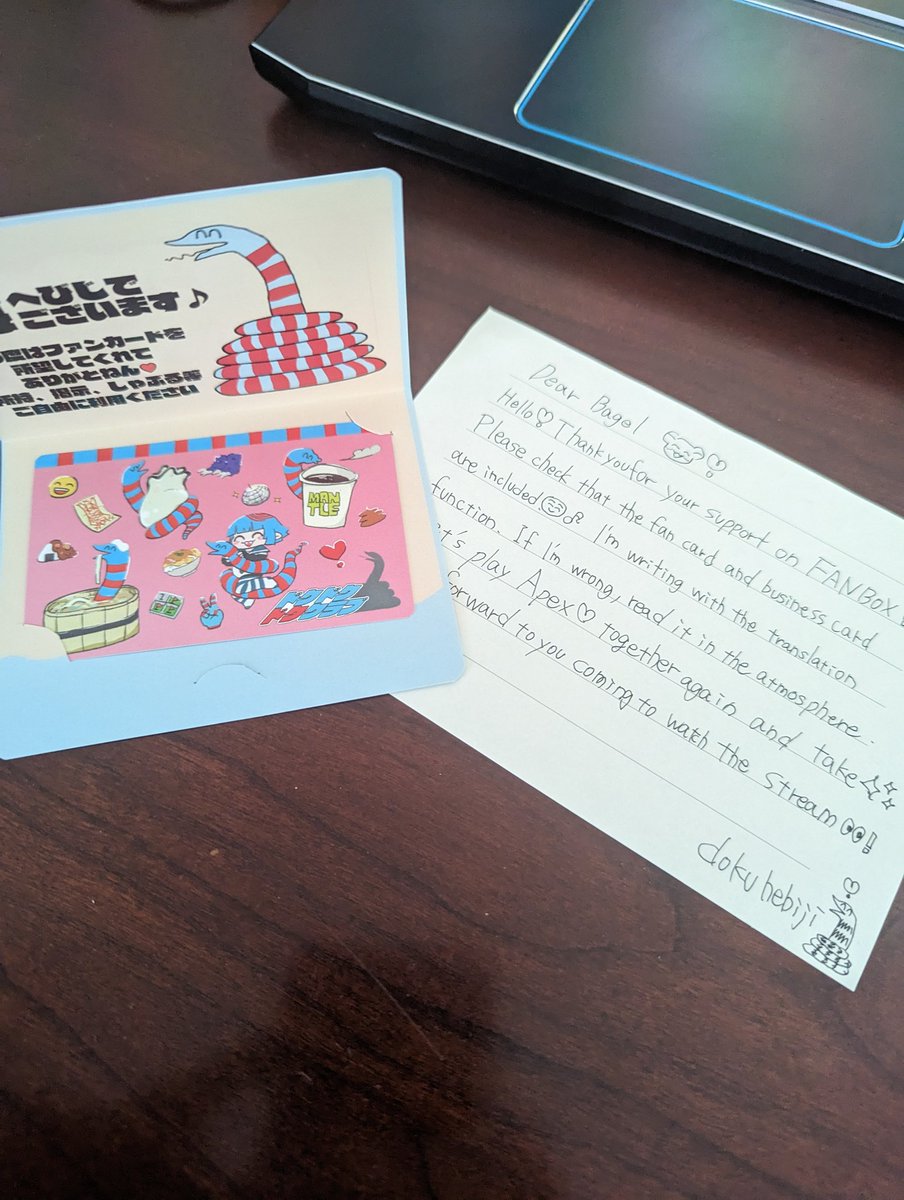 へびじで
ございます♪
はファンカードを
所望してくれて
ありがとねん♥
所持、指示、しゃぶる等
ご自由に利用ください
MAN
TLE
ドクドク
Dear Bagel
Hello♡ Thank you for your support on FANBOX
Please check that the fan card and business card
are included I'm writing with the translation
function. If I'm wrong, read it in the atmosphere.
t's play Apex♡ together again and take
forward to you coming to watch the stream!
dokuhebiji